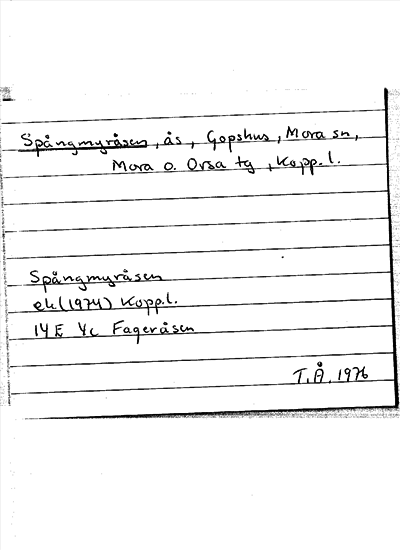 Spångmyråsen, ås, Gopshus, Mora sn,
Mora o. Orsa tg, Kopp.l.
Spångmyråsen
ek (1974) Kopp.l.
14E 4c Fageråsen
T.Å. 1976